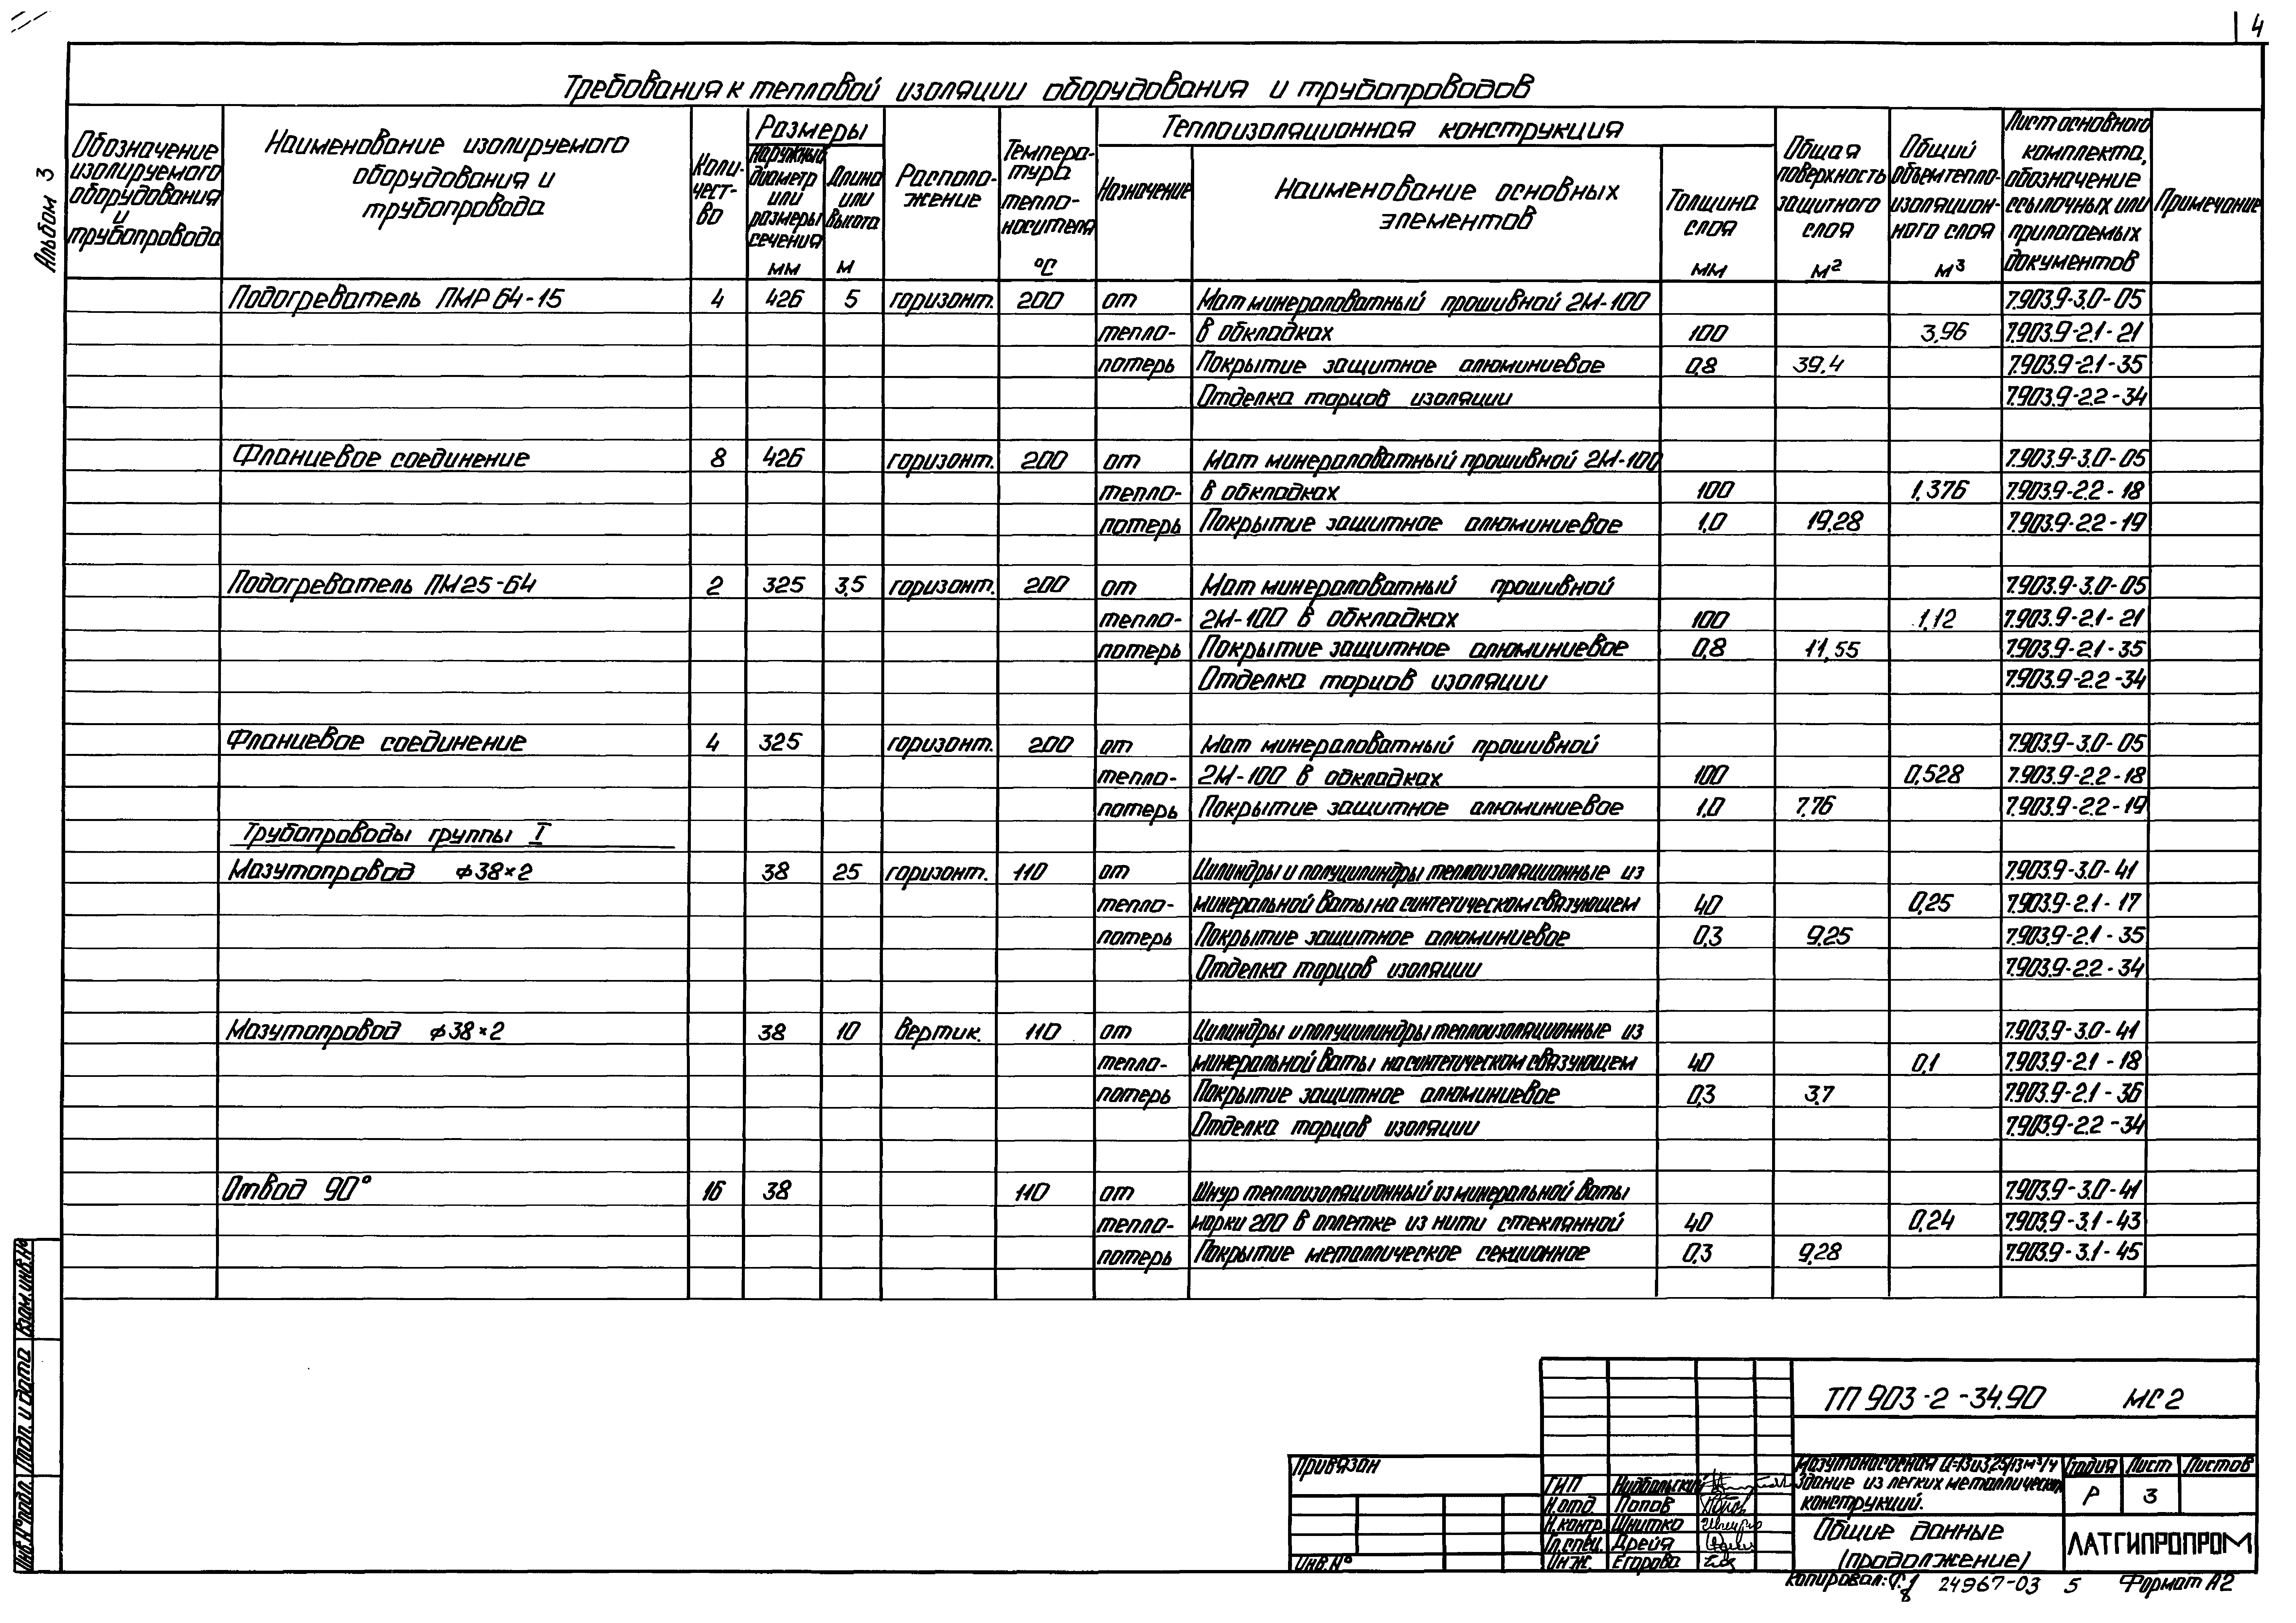 4
Альбом 3
Требования к тепловой изоляции оборудования и трубопроводов
Обозначение изолируемого оборудования и трубопровода
Наименование изолируемого оборудования и трубопровода
Количест-во
Размеры
наружный диаметр или размеры сечения мм
Длина или высота м
Располо-жение
Темпера-тура тепло-носителя °С
Теплоизоляционная конструкция
Назначение
Наименование основных элементов
Толщина слоя мм
Общая поверхность защитного слоя м²
Общий объем тепло-изоляцион-ного слоя м³
Лист основного комплекта, обозначение ссылочных или прилагаемых документов
Примечание
Подогреватель ПМР 64-15 4 426 5 горизонт. 200 от Мат минераловатный прошивной 2М-100 7.903.9-3.0-05
тепло- в обкладках 100 3,96 7.903.9-2.1-21
потерь Покрытие защитное алюминиевое 0,8 39,4 7.903.9-2.1-35
Отделка торцов изоляции 7.903.9-2.2-34
Фланцевое соединение 8 426 горизонт. 200 от Мат минераловатный прошивной 2М-100 7.903.9-3.0-05
тепло- в обкладках 100 1,376 7.903.9-2.2-18
потерь Покрытие защитное алюминиевое 1,0 19,28 7.903.9-2.2-19
Подогреватель ПМ25-64 2 325 3,5 горизонт. 200 от Мат минераловатный прошивной 7.903.9-3.0-05
тепло- 2М-100 в обкладках 100 1,12 7.903.9-2.1-21
потерь Покрытие защитное алюминиевое 0,8 11,55 7.903.9-2.1-35
Отделка торцов изоляции 7.903.9-2.2-34
Фланцевое соединение 4 325 горизонт. 200 от Мат минераловатный прошивной 7.903.9-3.0-05
тепло- 2М-100 в обкладках 100 0,528 7.903.9-2.2-18
потерь Покрытие защитное алюминиевое 1,0 7,76 7.903.9-2.2-19
Трубопроводы группы I
Мазутопровод ф38×2 38 25 горизонт. 110 от Цилиндры и полуцилиндры теплоизоляционные из 7.903.9-3.0-41
тепло- минеральной ваты на синтетическом связующем 40 0,25 7.903.9-2.1-17
потерь Покрытие защитное алюминиевое 0,3 9,25 7.903.9-2.1-35
Отделка торцов изоляции 7.903.9-2.2-34
Мазутопровод ф38×2 38 10 вертик. 110 от Цилиндры и полуцилиндры теплоизоляционные из 7.903.9-3.0-41
тепло- минеральной ваты на синтетическом связующем 40 0,1 7.903.9-2.1-18
потерь Покрытие защитное алюминиевое 0,3 3,7 7.903.9-2.1-36
Отделка торцов изоляции 7.903.9-2.2-34
Отвод 90° 16 38 110 от Шнур теплоизоляционный из минеральной ваты 7.903.9-3.0-41
тепло- марки 200 в оплетке из нити стеклянной 40 0,24 7.903.9-3.1-43
потерь Покрытие металлическое секционное 0,3 9,28 7.903.9-3.1-45
Взам.инв.№
Подп. и дата
Инв.№ подл.
ТП 903-2-34.90 МС2
Привязан
Инв.№
ГИП
Н.отд. Попов
Н.контр. Шнитко
Гл.спец. Дрейя
Инж. Егорова
Мазутонасосная Q=13 и 3,25/13 м³/ч
Здание из легких металлических
конструкций.
Стадия Лист Листов
Р 3
Общие данные
(продолжение)
ЛАТГИПРОПРОМ
Копировал: 24967-03 5 Формат А2